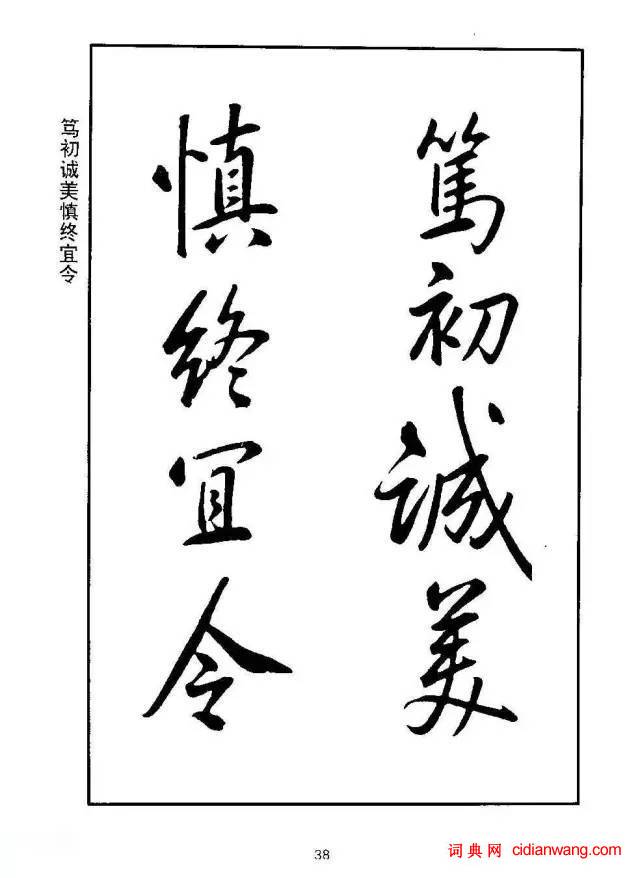 篤初誠美
慎終宜令
笃初诚美慎终宜令
38
词典网 cidianwang.com